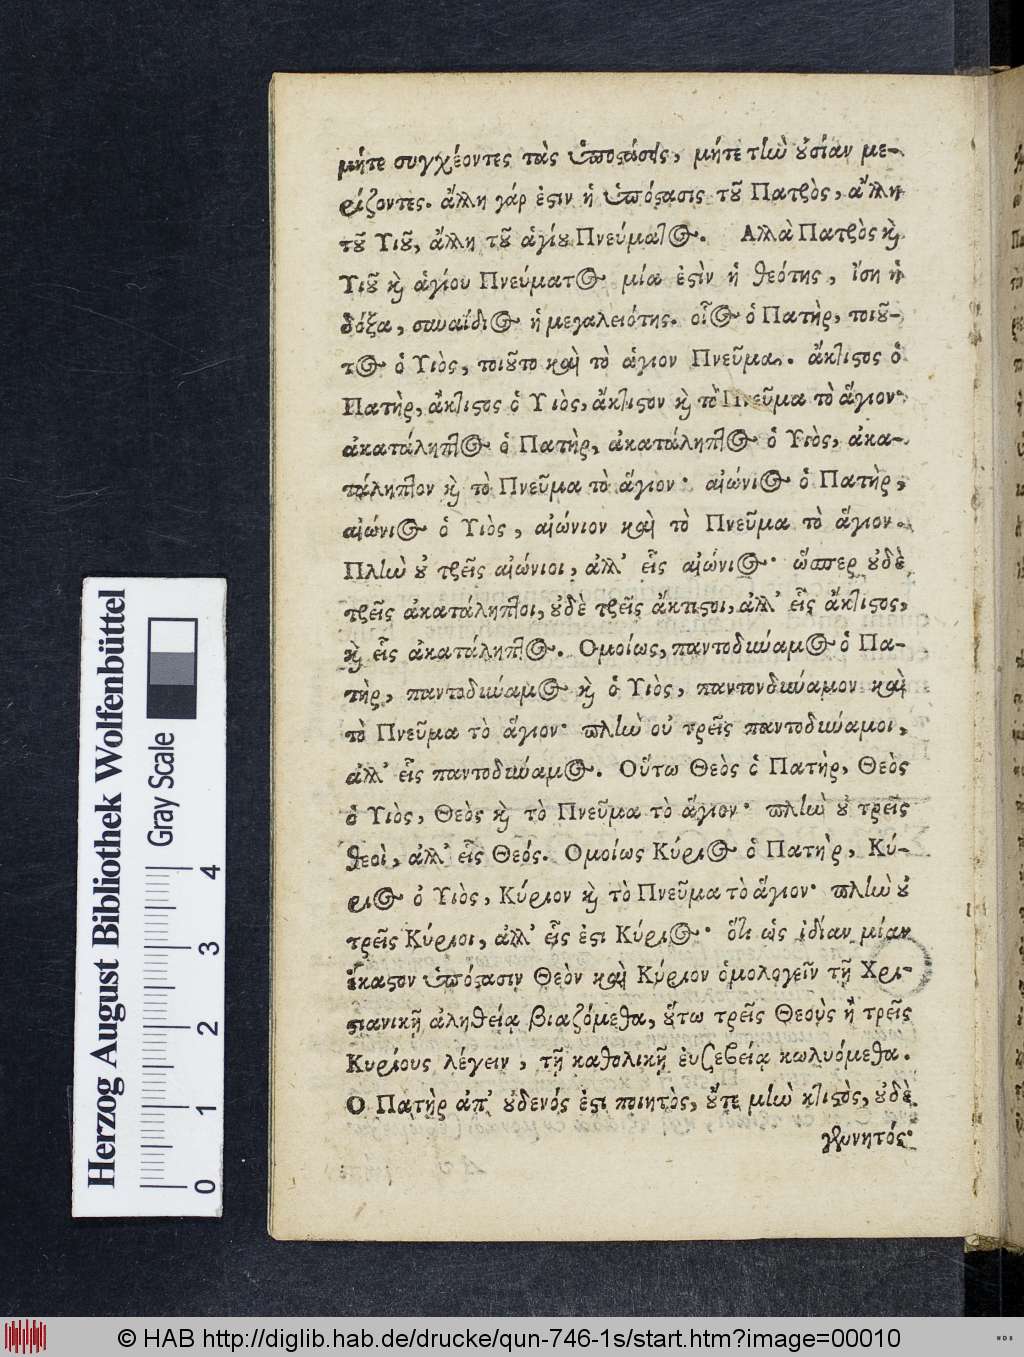 μήτε συγχέοντες τὰς ὑποστάσεις, μήτε τὴν οὐσίαν με-
ρίζοντες. ἄλλη γάρ ἐστιν ἡ ὑπόστασις τοῦ Πατρὸς, ἄλλη
τοῦ Υἱοῦ, ἄλλη τοῦ ἁγίου Πνεύματος. Αλλὰ Πατρὸς καὶ
Υἱοῦ καὶ ἁγίου Πνεύματος μία ἐστὶν ἡ θεότης, ἴση ἡ
δόξα, συναΐδιος ἡ μεγαλειότης. οἷος ὁ Πατὴρ, τοιοῦ-
τος ὁ Υἱὸς, τοιοῦτο καὶ τὸ ἅγιον Πνεῦμα. ἄκτιστος ὁ
Πατὴρ, ἄκτιστος ὁ Υἱὸς, ἄκτιστον καὶ τὸ Πνεῦμα τὸ ἅγιον·
ἀκατάληπτος ὁ Πατὴρ, ἀκατάληπτος ὁ Υἱὸς, ἀκα-
τάληπτον καὶ τὸ Πνεῦμα τὸ ἅγιον· αἰώνιος ὁ Πατὴρ,
αἰώνιος ὁ Υἱὸς, αἰώνιον καὶ τὸ Πνεῦμα τὸ ἅγιον.
Πλὴν οὐ τρεῖς αἰώνιοι, ἀλλ' εἷς αἰώνιος· ὥσπερ οὐδὲ
τρεῖς ἀκατάληπτοι, οὐδὲ τρεῖς ἄκτιστοι, ἀλλ' εἷς ἄκτιστος,
καὶ εἷς ἀκατάληπτος. Ομοίως, παντοδύναμος ὁ Πα-
τὴρ, παντοδύναμος καὶ ὁ Υἱὸς, παντονδύναμον καὶ
τὸ Πνεῦμα τὸ ἅγιον· πλὴν οὐ τρεῖς παντοδύναμοι,
ἀλλ' εἷς παντοδύναμος. Οὕτω Θεὸς ὁ Πατὴρ, Θεὸς
ὁ Υἱὸς, Θεὸς καὶ τὸ Πνεῦμα τὸ ἅγιον· πλὴν οὐ τρεῖς
θεοὶ, ἀλλ' εἷς Θεός. Ομοίως Κύριος ὁ Πατὴρ, Κύ-
ριος ὁ Υἱὸς, Κύριον καὶ τὸ Πνεῦμα τὸ ἅγιον· πλὴν οὐ
τρεῖς Κύριοι, ἀλλ' εἷς ἐστι Κύριος· ὅτι ὡς ἰδίαν μίαν
ἕκαστον ὑπόστασιν Θεὸν καὶ Κύριον ὁμολογεῖν τῇ Χρι-
στιανικῇ ἀληθείᾳ βιαζόμεθα, οὕτω τρεῖς Θεοὺς ἢ τρεῖς
Κυρίους λέγειν, τῇ καθολικῇ εὐσεβείᾳ κωλυόμεθα.
Ο Πατὴρ ἀπ' οὐδενός ἐστι ποιητὸς, οὔτε μὴν κτιστὸς, οὐδὲ
γεννητός·
Herzog August Bibliothek Wolfenbüttel
Gray Scale
0 1 2 3 4
© HAB http://diglib.hab.de/drucke/qun-746-1s/start.htm?image=00010